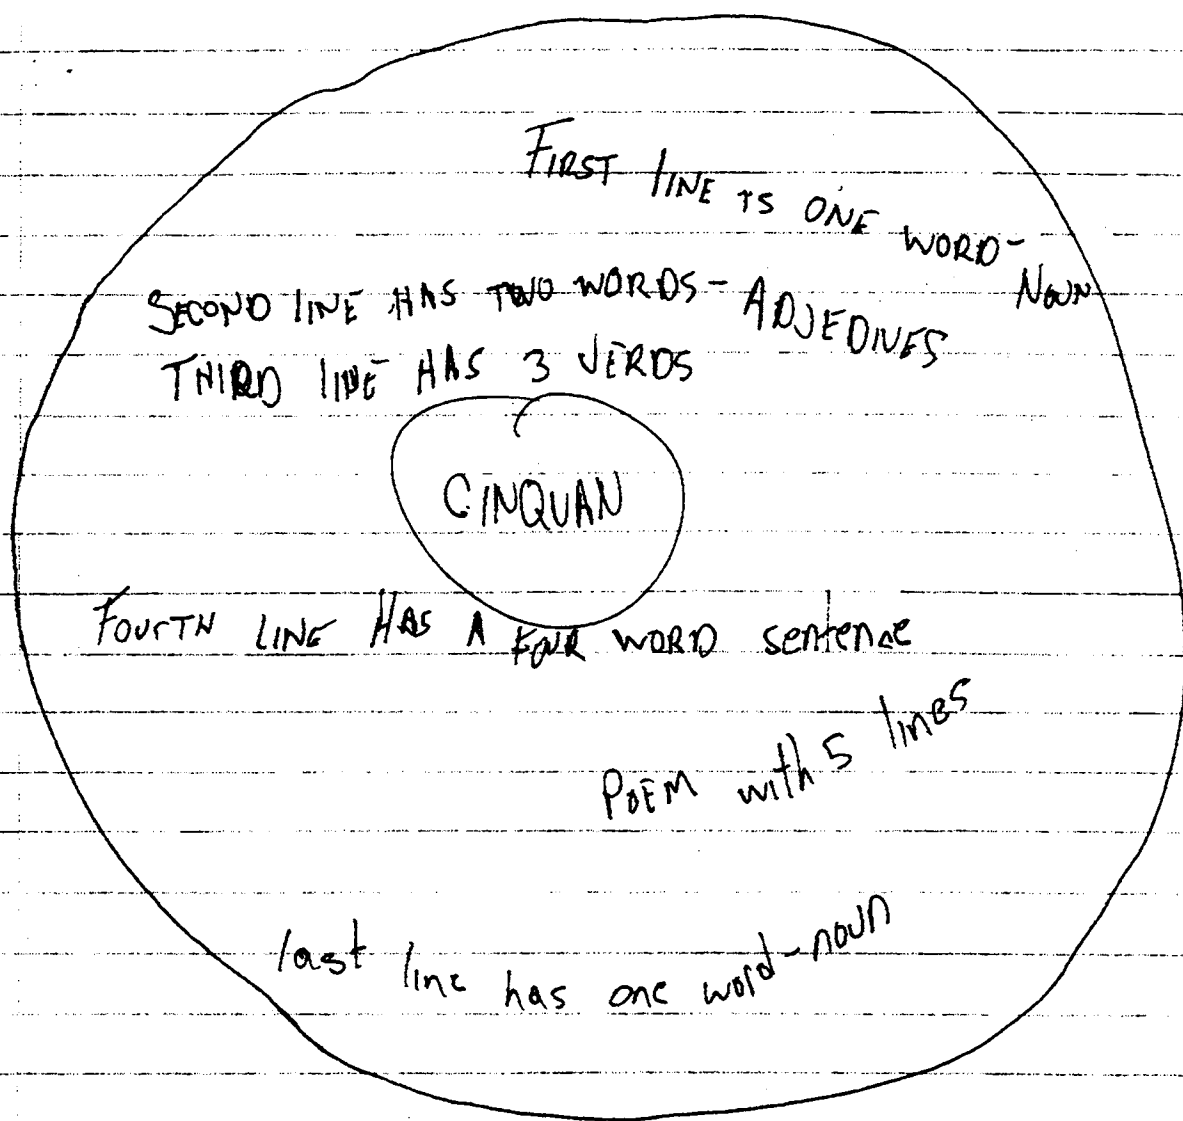 FIRST LINE IS ONE WORD - NOUN
SECOND LINE HAS TWO WORDS - ADJEDIVES
THIRD LINE HAS 3 VERDS
CINQUAN
FOURTH LINE HAS A FOUR WORD sentence
POEM with 5 lines
last line has one word - noun